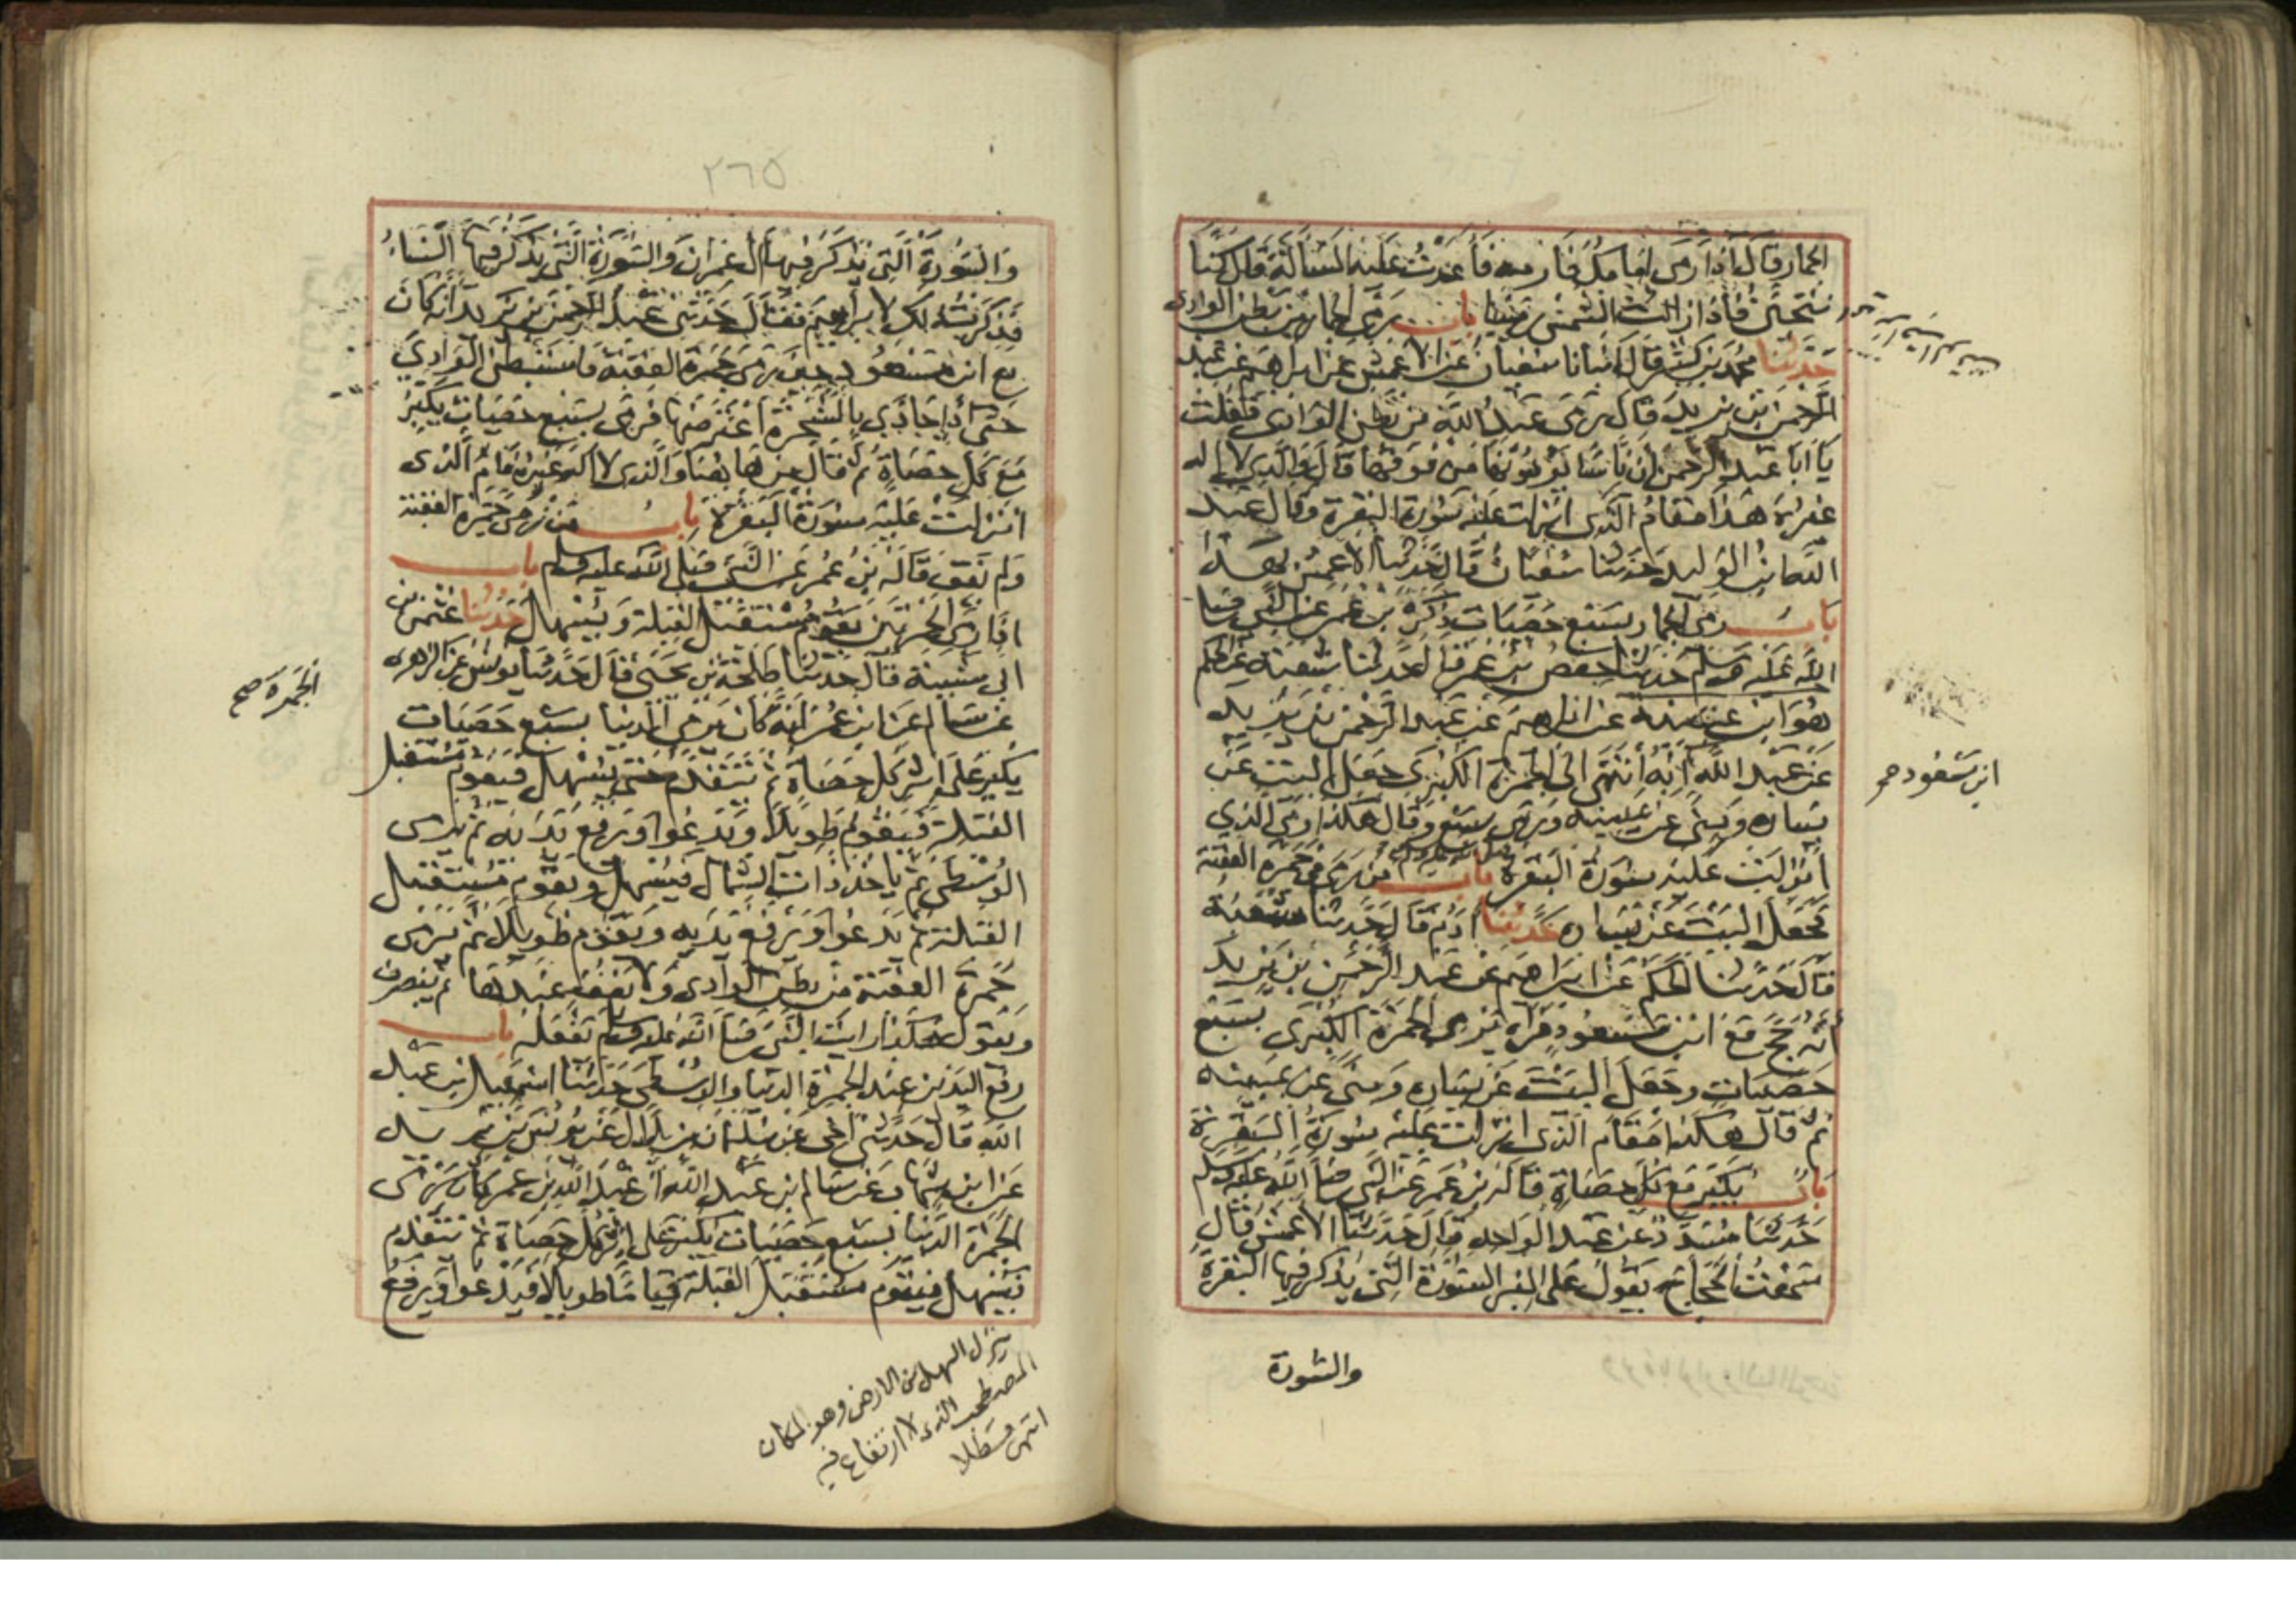 الجمار قال اذا رمى امامك فارمه فأعدت عليه المسألة قال كنا
نتحين فاذا زالت الشمس رمينا باب رمى الجمار من بطن الوادى
حدثنا محمد بن كثير قال انبأنا سفيان عن الاعمش عن ابراهيم عن عبد
الرحمن ابن يزيد قال رمى عبد الله من بطن الوادى فقلت
يا ابا عبد الرحمن ان ناسا يرمونها من فوقها قال والذي لا اله
غيره هذا مقام الذى انزلت عليه سورة البقرة وقال عبد
الله ابن الوليد حدثنا سفيان قال حدثنا الاعمش بهذا
باب رمى الجمار بسبع حصيات ذكره بن عمر عن النبي صلى
الله عليه وسلم حدثنا حفص بن عمر قال حدثنا شعبة عن الحكم
هو ابن عتيبة عن ابراهيم عن عبد الرحمن بن يزيد
عن عبد الله انه انتهى الى الجمرة الكبرى جعل البيت عن
ابن مسعود صح
يساره ومنى عن يمينه ورمى بسبع وقال هكذا رمى الذي
انزلت عليه سورة البقرة باب من رمى جمرة العقبة
فجعل البيت عن يساره حدثنا آدم قال حدثنا شعبة
قال حدثنا الحكم عن ابراهيم عن عبد الرحمن بن يزيد
أنه حج مع ابن مسعود فرآه يرمى الجمرة الكبرى بسبع
حصيات وجعل البيت عن يساره ومنى عن يمينه
ثم قال هكذا مقام الذى انزلت عليه سورة البقرة
باب يكبر مع كل حصاة قاله بن عمر عن النبي صلى الله عليه وسلم
حدثنا مسدد عن عبد الواحد قال حدثنا الأعمش قال
سمعت الحجاج يقول على المنبر السورة التى يذكر فيها البقرة
والسورة
٢٦٥
والسورة التى يذكر فيها آل عمران والسورة التى يذكر فيها النساء
فذكرت ذلك لابراهيم فقال حدثنى عبد الرحمن بن يزيد انه كان
مع ابن مسعود حين رمى جمرة العقبة فاستبطن الوادي
حتى اذا حاذي بالشجرة اعترضها فرمى بسبع حصيات يكبر
مع كل حصاة ثم قال من هاهنا والذى لا اله غيره قام الذى
انزلت عليه سورة البقرة باب من رمى جمرة العقبة
ولم يقف قاله بن عمر عن النبي صلى الله عليه وسلم باب
اذا رمى الجمرتين يقوم مستقبل القبلة ويسهل حدثنا عثمن بن
ابى شيبة قال حدثنا طلحة بن يحيى قال حدثنا يونس عن الزهرى
الجمرة صح
عن سالم عن ابن عمر انه كان يرمى الدنيا بسبع حصيات
يكبر على اثر كل حصاة ثم يتقدم حتى يسهل فيقوم مستقبل
القبلة فيقوم طويلا ويدعوا ويرفع يديه ثم يرمى
الوسطى ثم ياخذ ذات الشمال فيسهل ويقوم مستقبل
القبلة ثم يدعوا ويرفع يديه ويقوم طويلا ثم يرمى
جمرة العقبة من بطن الوادى ولا يقف عندها ثم ينصرف
ويقول هكذا رايت النبى صلى الله عليه وسلم يفعله باب
رفع اليدين عند الجمرة الدنيا والوسطى حدثنا اسمعيل بن عبد
الله قال حدثنى اخى عن سليمان بن بلال عن يونس بن يزيد
عن ابن شهاب عن سالم ابن عبد الله ان عبد الله بن عمر كان يرمى
الجمرة الدنيا بسبع حصيات يكبر على اثر كل حصاة ثم يتقدم
فيسهل فيقوم مستقبل القبلة قياما طويلا فيدعوا ويرفع
ينزل السهل من الارض وهو المكان
المصطحب الذى لا ارتفاع فيه
انتهى قسطلا